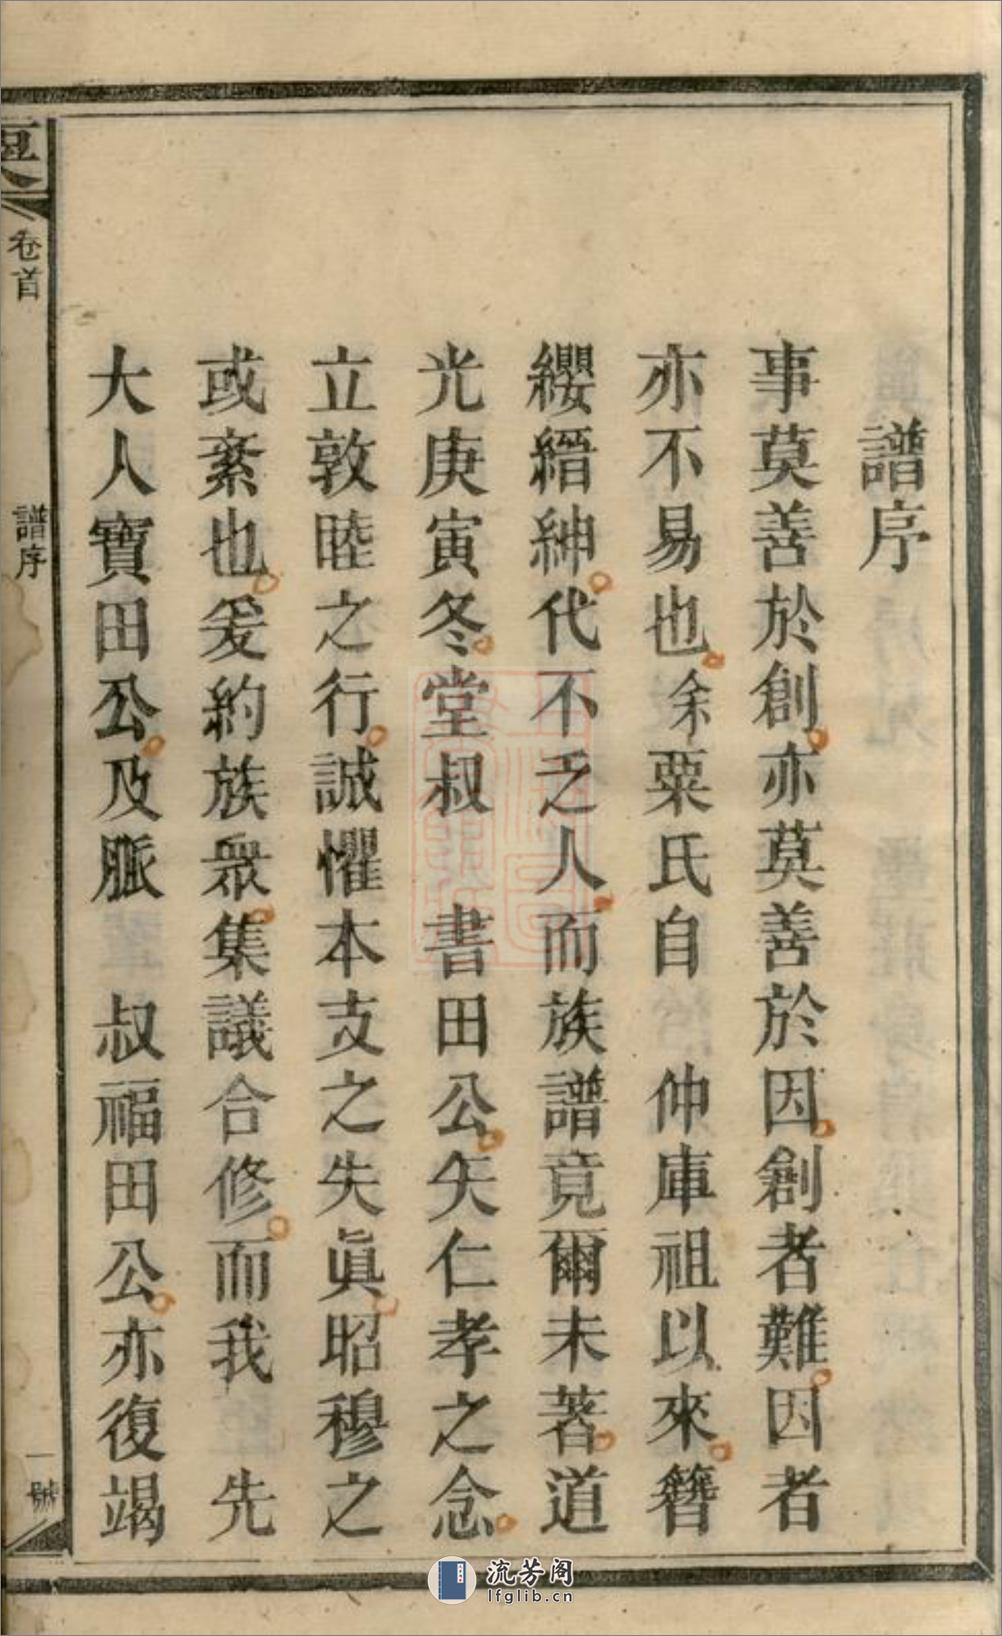 譜序
事莫善於創亦莫善於因創者難因者
亦不易也余粟氏自　仲庫祖以來簪
纓縉紳代不乏人而族譜竟爾未著道
光庚寅冬堂叔　書田公矢仁孝之念
立敦睦之行誠懼本支之失眞昭穆之
或紊也爰約族衆集議合修而我　先
大人寶田公及脈　叔福田公亦復竭
卷首
譜序
一號
流芳阁
lfglib.cn